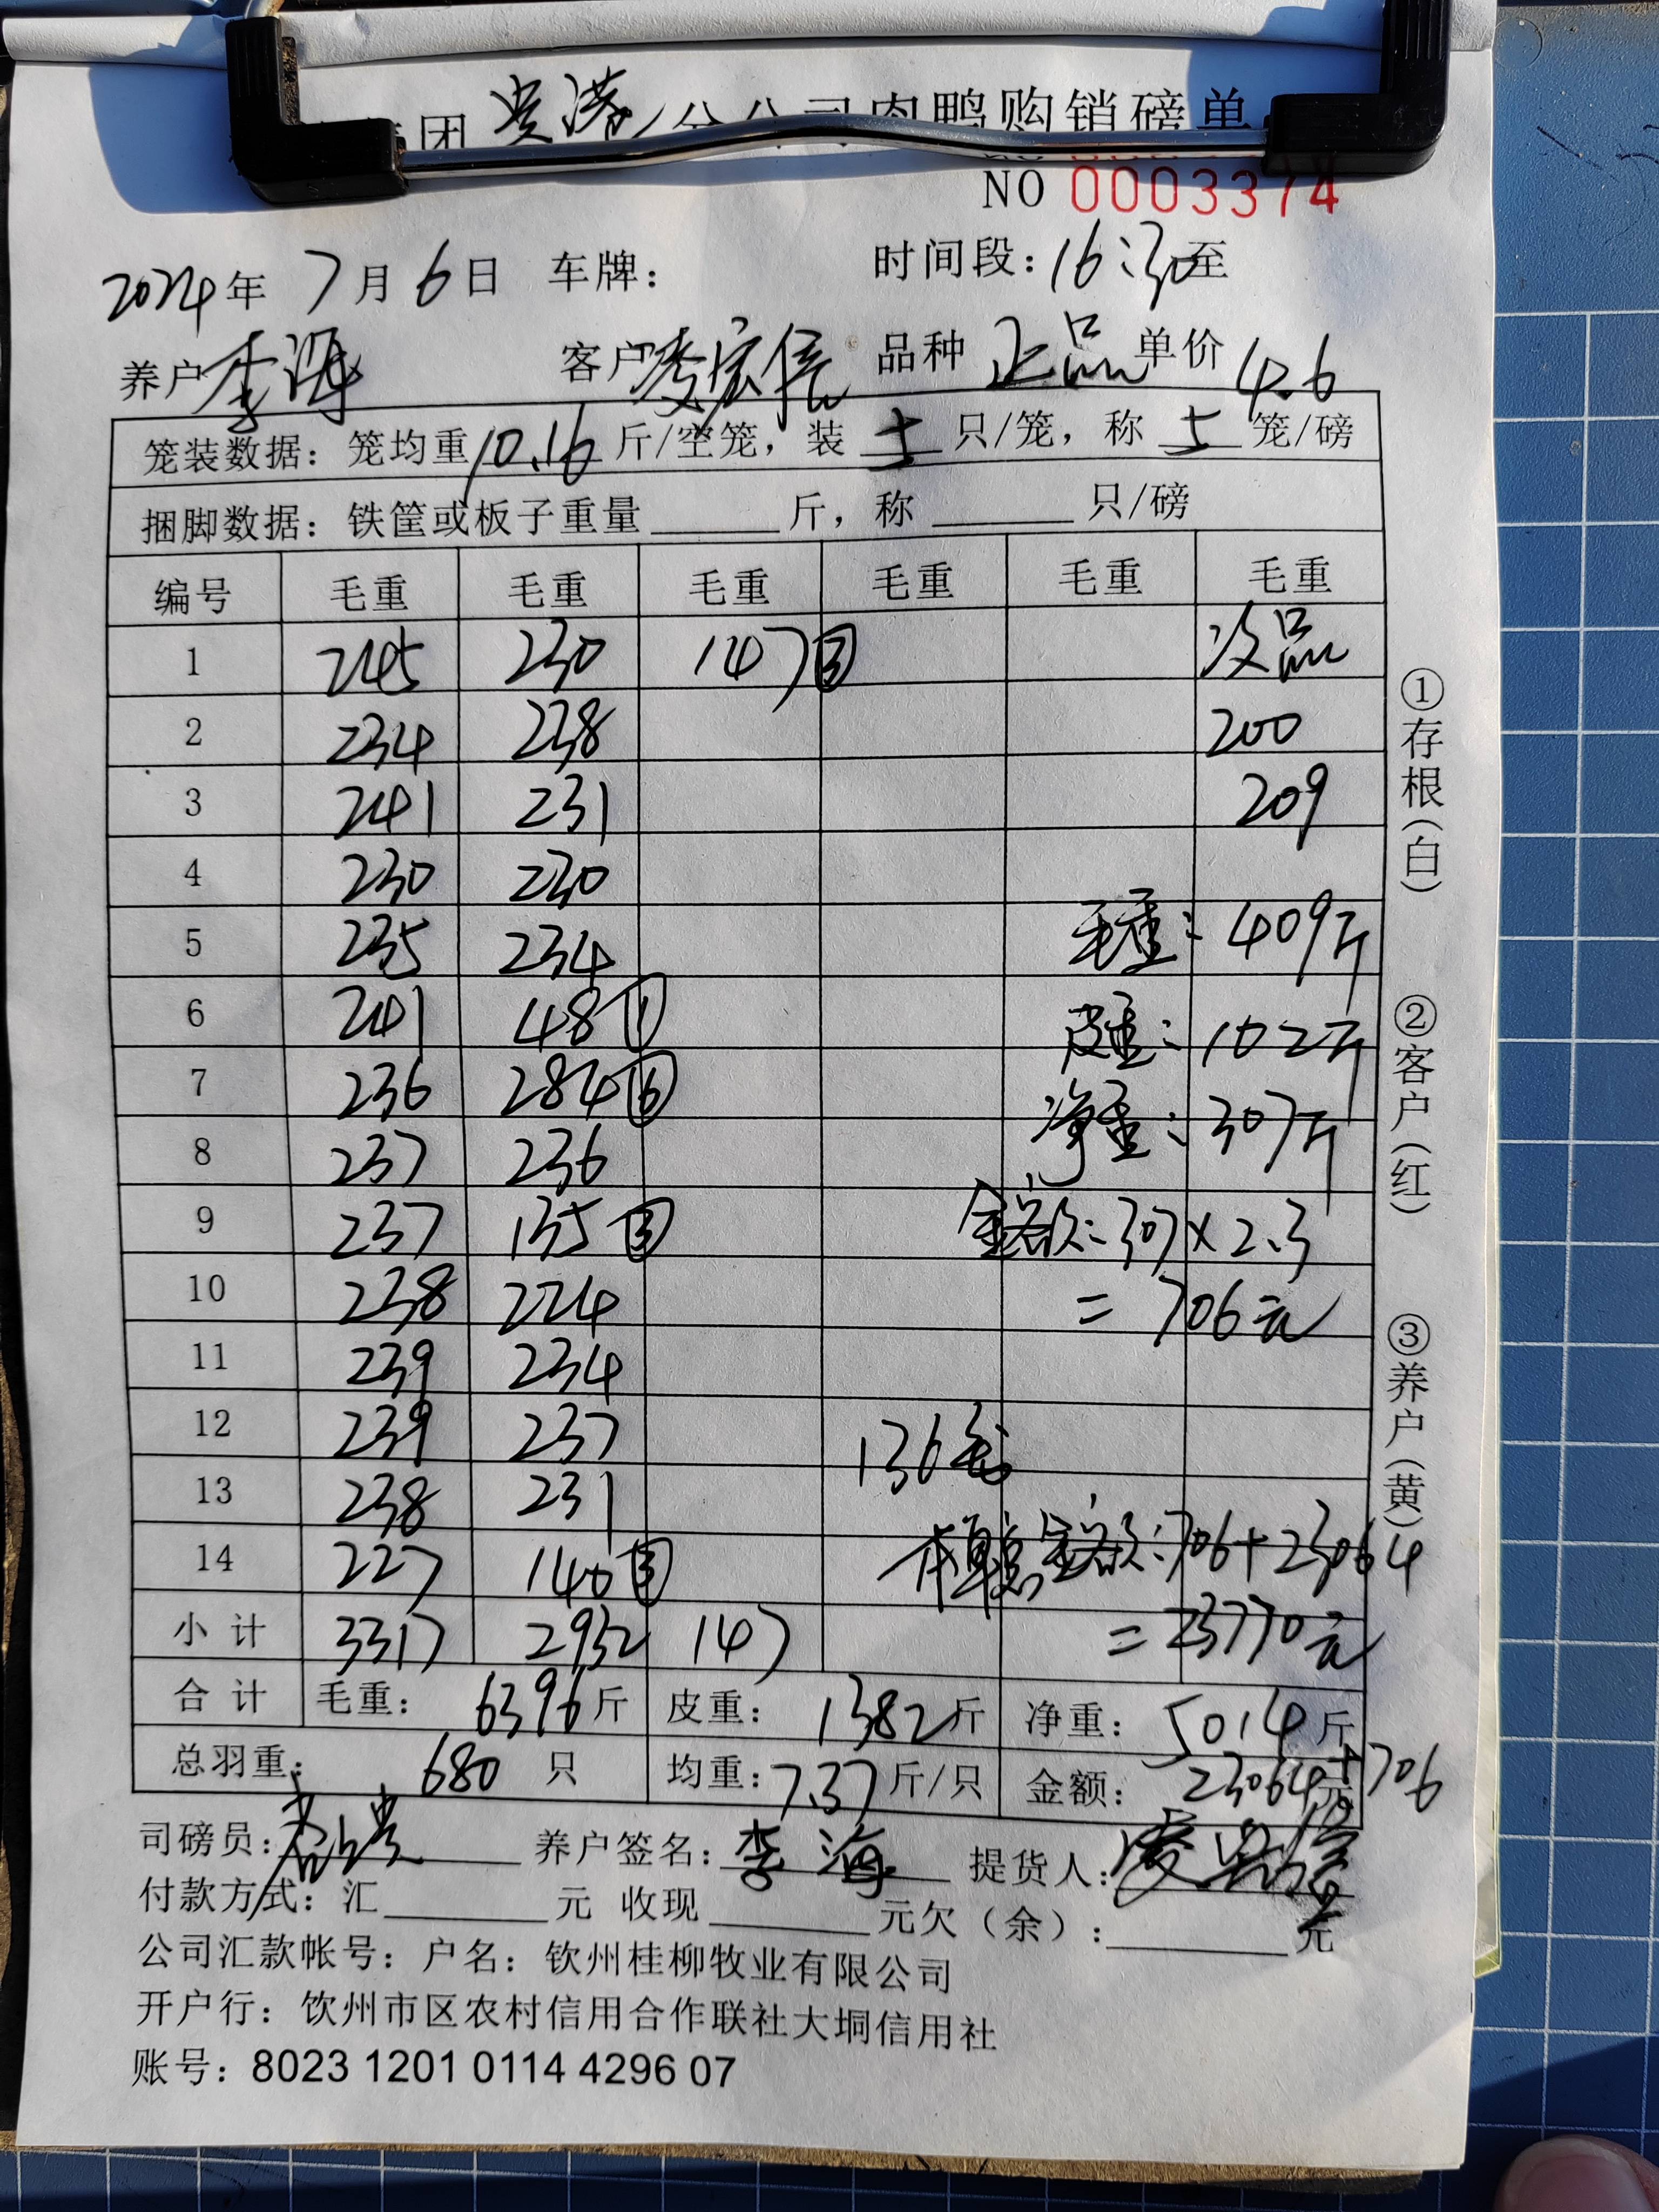 团 贵港 分公司肉鸭购销磅单
NO 0003374
2024年 7月6日 车牌： 时间段：16:30至
养户 李海 客户 凌宏信 品种 正品 单价 4.6
笼装数据：笼均重 10.16 斤/空笼，装 5 只/笼，称 5 笼/磅
捆脚数据：铁筐或板子重量______斤，称______只/磅
编号 毛重 毛重 毛重 毛重 毛重 毛重
1 245 230 147③ 次品
2 234 238 200
3 241 231 209
4 230 230
5 235 234 毛重：409斤
6 241 48① 皮重：102斤
7 236 284⑥ 净重：307斤
8 237 236
9 237 135③ 金额：307×2.3
10 238 224 =706元
11 239 234
12 239 237 136毛
13 238 231
14 227 140③ 本单总金额：706+23064
小计 3317 2932 147 =23770元
合计 毛重：6396斤 皮重：1382斤 净重：5014斤
总羽重：680 只 均重：7.37斤/只 金额：23064元+706
司磅员： 养户签名：李海 提货人：凌
付款方式：汇______元 收现______元欠（余）：______元
公司汇款帐号：户名：钦州桂柳牧业有限公司
开户行：饮州市区农村信用合作联社大垌信用社
账号：8023 1201 0114 4296 07
①存根（白） ②客户（红） ③养户（黄）